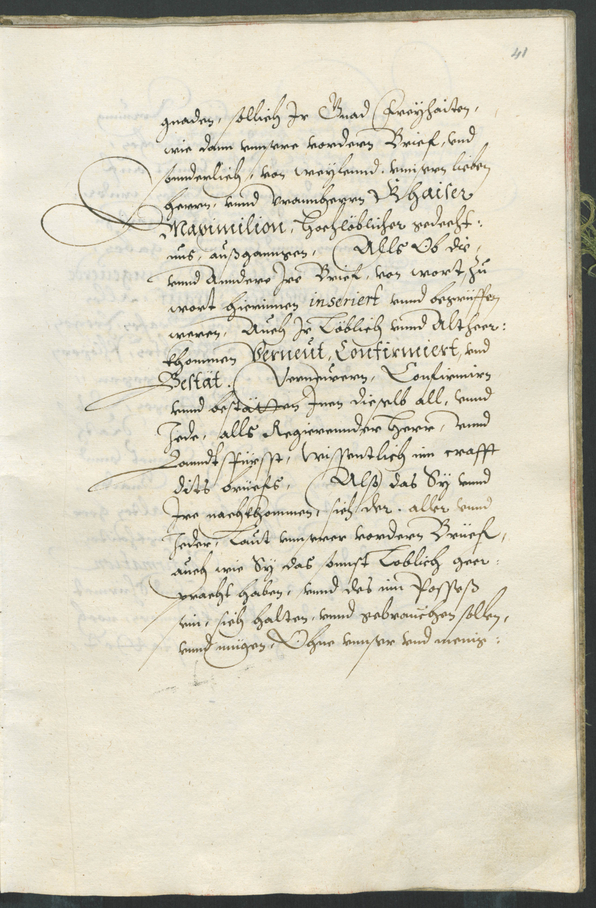 41
gnaden, sollich Ir Gnad Freyhaiten,
wie dann vnnsere vordern Brief, vnd
sonnderlich, von weylennd, vnnsern lieben
herrn, vnnd Vranherrn Khaiser
Maximilion, hochloblicher gedecht:
nus, außganngen, Alls Ob die,
vnnd Anndere Ire Brief, von wort zu
wort hierinnen inseriert vnnd begriffen
weren, Auch Ir Löblich vnnd Alt heer:
khommen Verneut, Confirmiert, vnd
Bestät. Verneuern, Confirmirn
vnnd bestätten Inen dieselb all, vnnd
Jede, alls Regierennder Herr, vnnd
Lanndtsfürsst, wissentlich im crafft
dits brieffs, Alß das Sy vnnd
Ire nachkhommen, sich der. aller vnnd
Jeder, laut vnnserer vordern Brief,
auch wie Sy das sonnst Loblich geer:
pracht haben, vnnd des im Possess
sein, sich halten, vnnd gebrauchen sollen,
vnnd mügen, Ohne vnnser vnd menig: